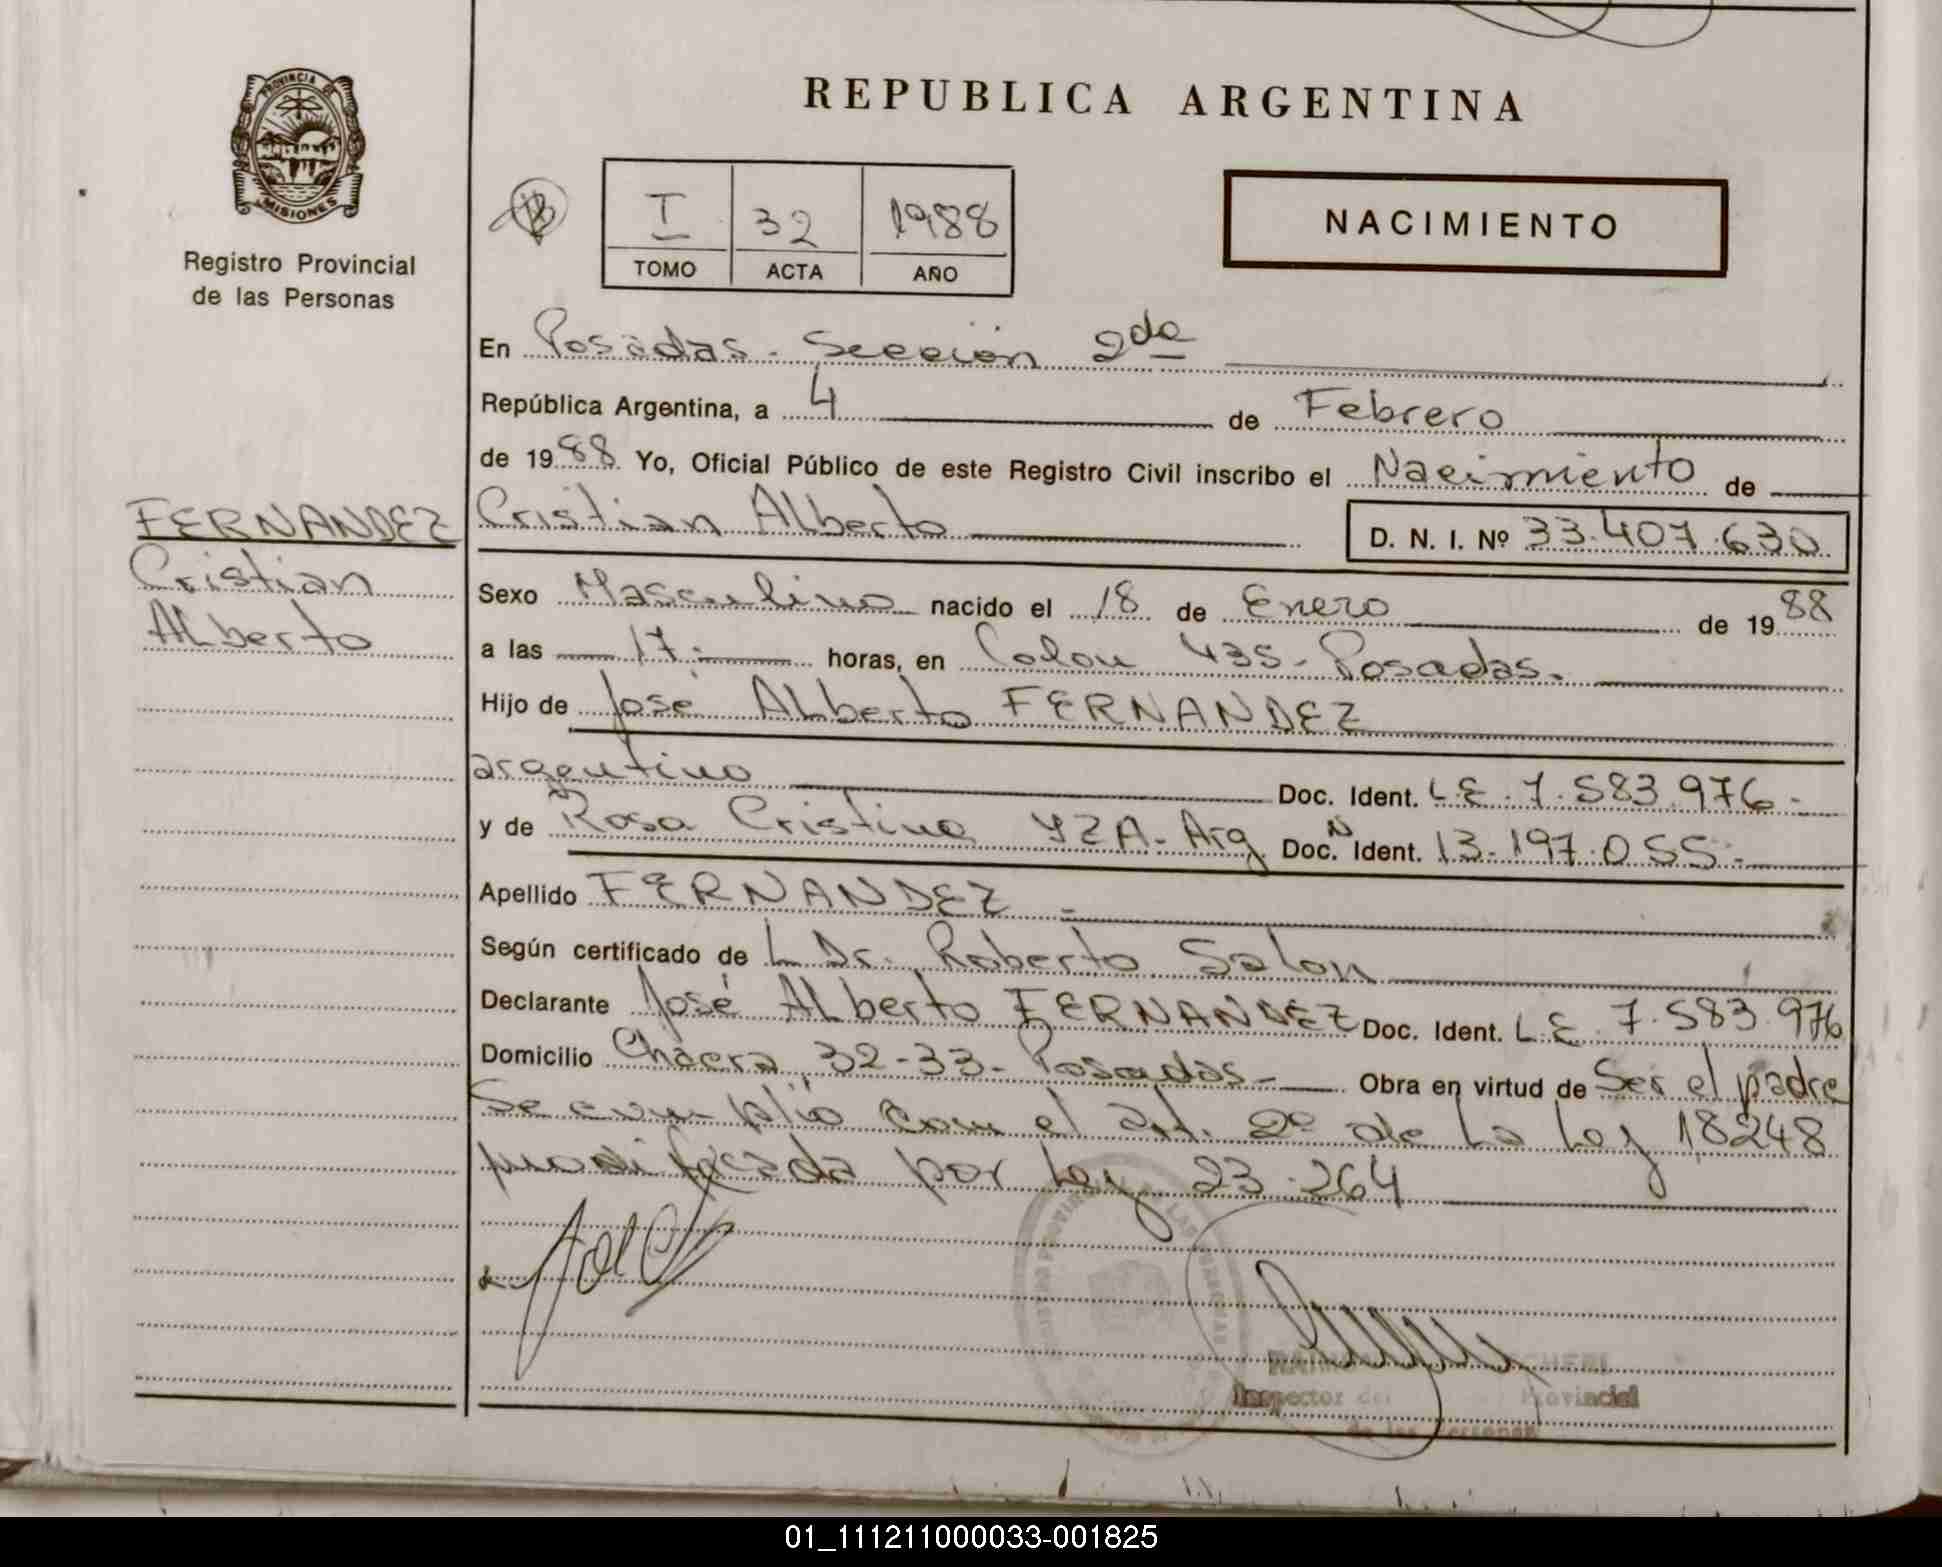 REPUBLICA ARGENTINA
PROVINCIA DE
MISIONES
Registro Provincial
de las Personas
I 32 1988
TOMO ACTA AÑO
NACIMIENTO
En Posadas - Sección 2da
República Argentina, a 4 de Febrero
de 1988 Yo, Oficial Público de este Registro Civil inscribo el Nacimiento de
FERNANDEZ
Cristian
Alberto
Cristian Alberto D. N. I. Nº 33.407.630
Sexo Masculino nacido el 18 de Enero de 1988
a las 17.- horas, en Colon 435 - Posadas.
Hijo de José Alberto FERNANDEZ
argentino Doc. Ident. L.E. 7.583.976.-
y de Rosa Cristina YZA - Arg. Doc. N Ident. 13.197.055.-
Apellido FERNANDEZ -
Según certificado de L Dr. Roberto Salon
Declarante José Alberto FERNANDEZ Doc. Ident. L.E. 7.583.976
Domicilio Chacra 32-33- Posadas - Obra en virtud de Ser el padre
Se cumplió con el art. 2º de la Ley 18248
modificada por Ley 23.264
Inspector del Provincial
de las Personas
01_111211000033-001825